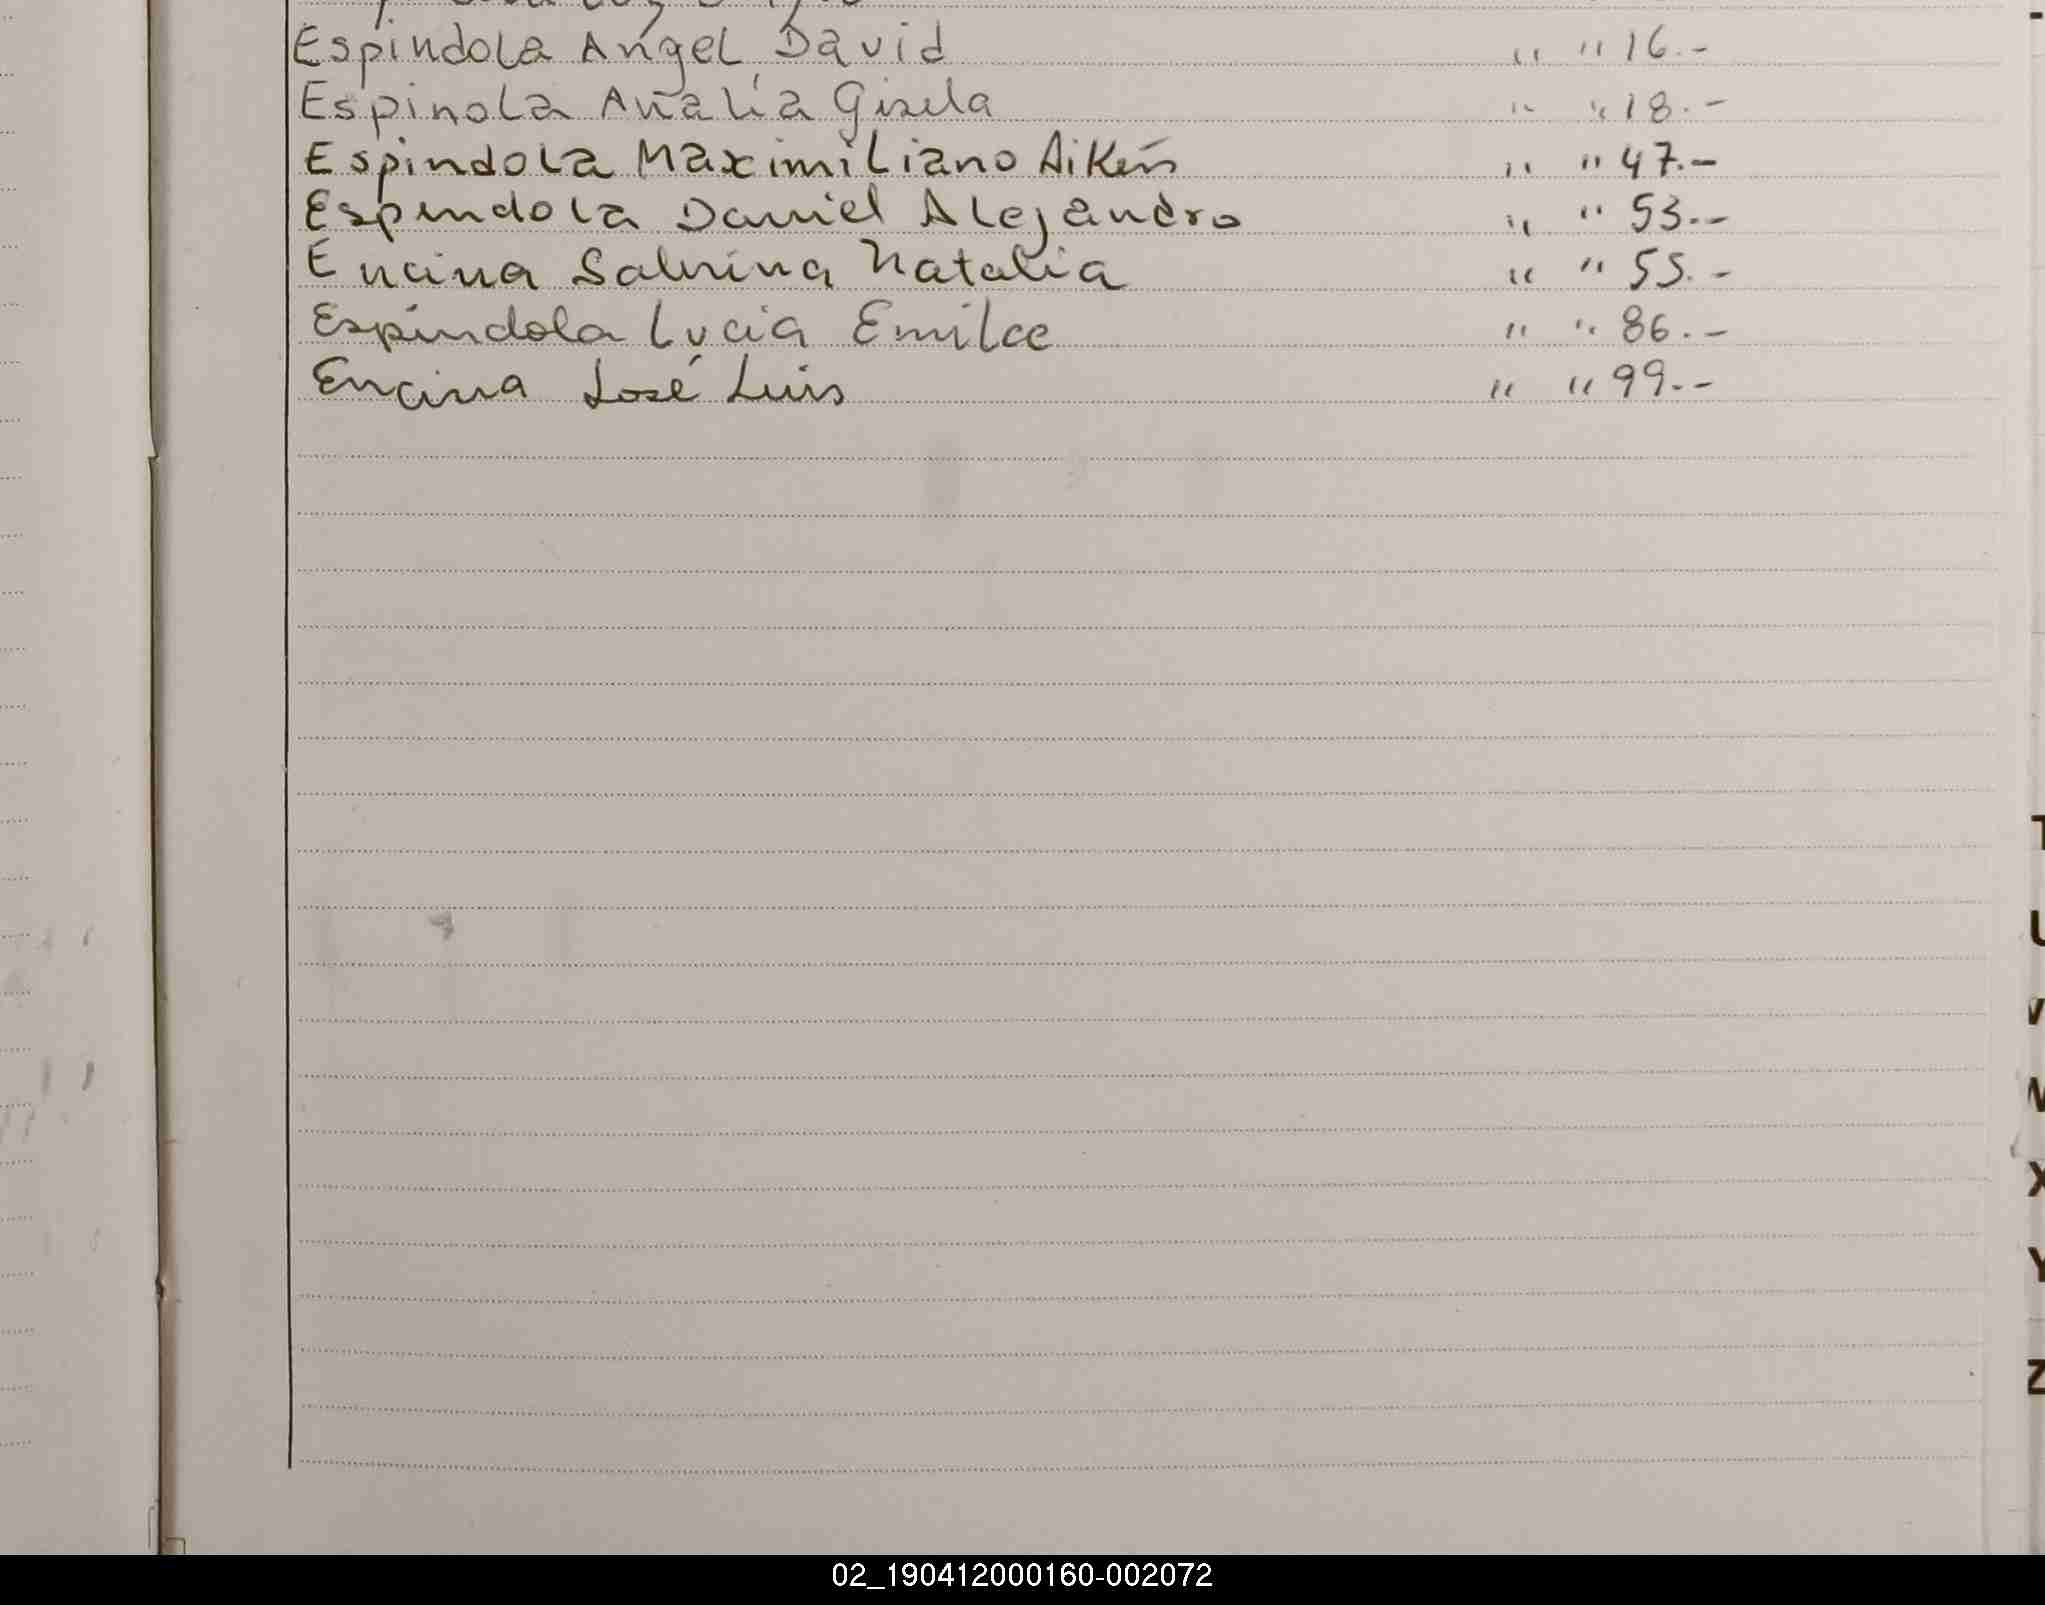 Espindola Angel David " " 16.-
Espinola Analía Gisela " " 18.-
Espindola Maximiliano Aikén " " 47.-
Espindola Daniel Alejandro " " 53.-
Encina Sabrina Natalia " " 55.-
Espíndola Lucía Emilce " " 86.-
Encina José Luis " " 99.-
T
U
V
W
X
Y
Z
02_190412000160-002072